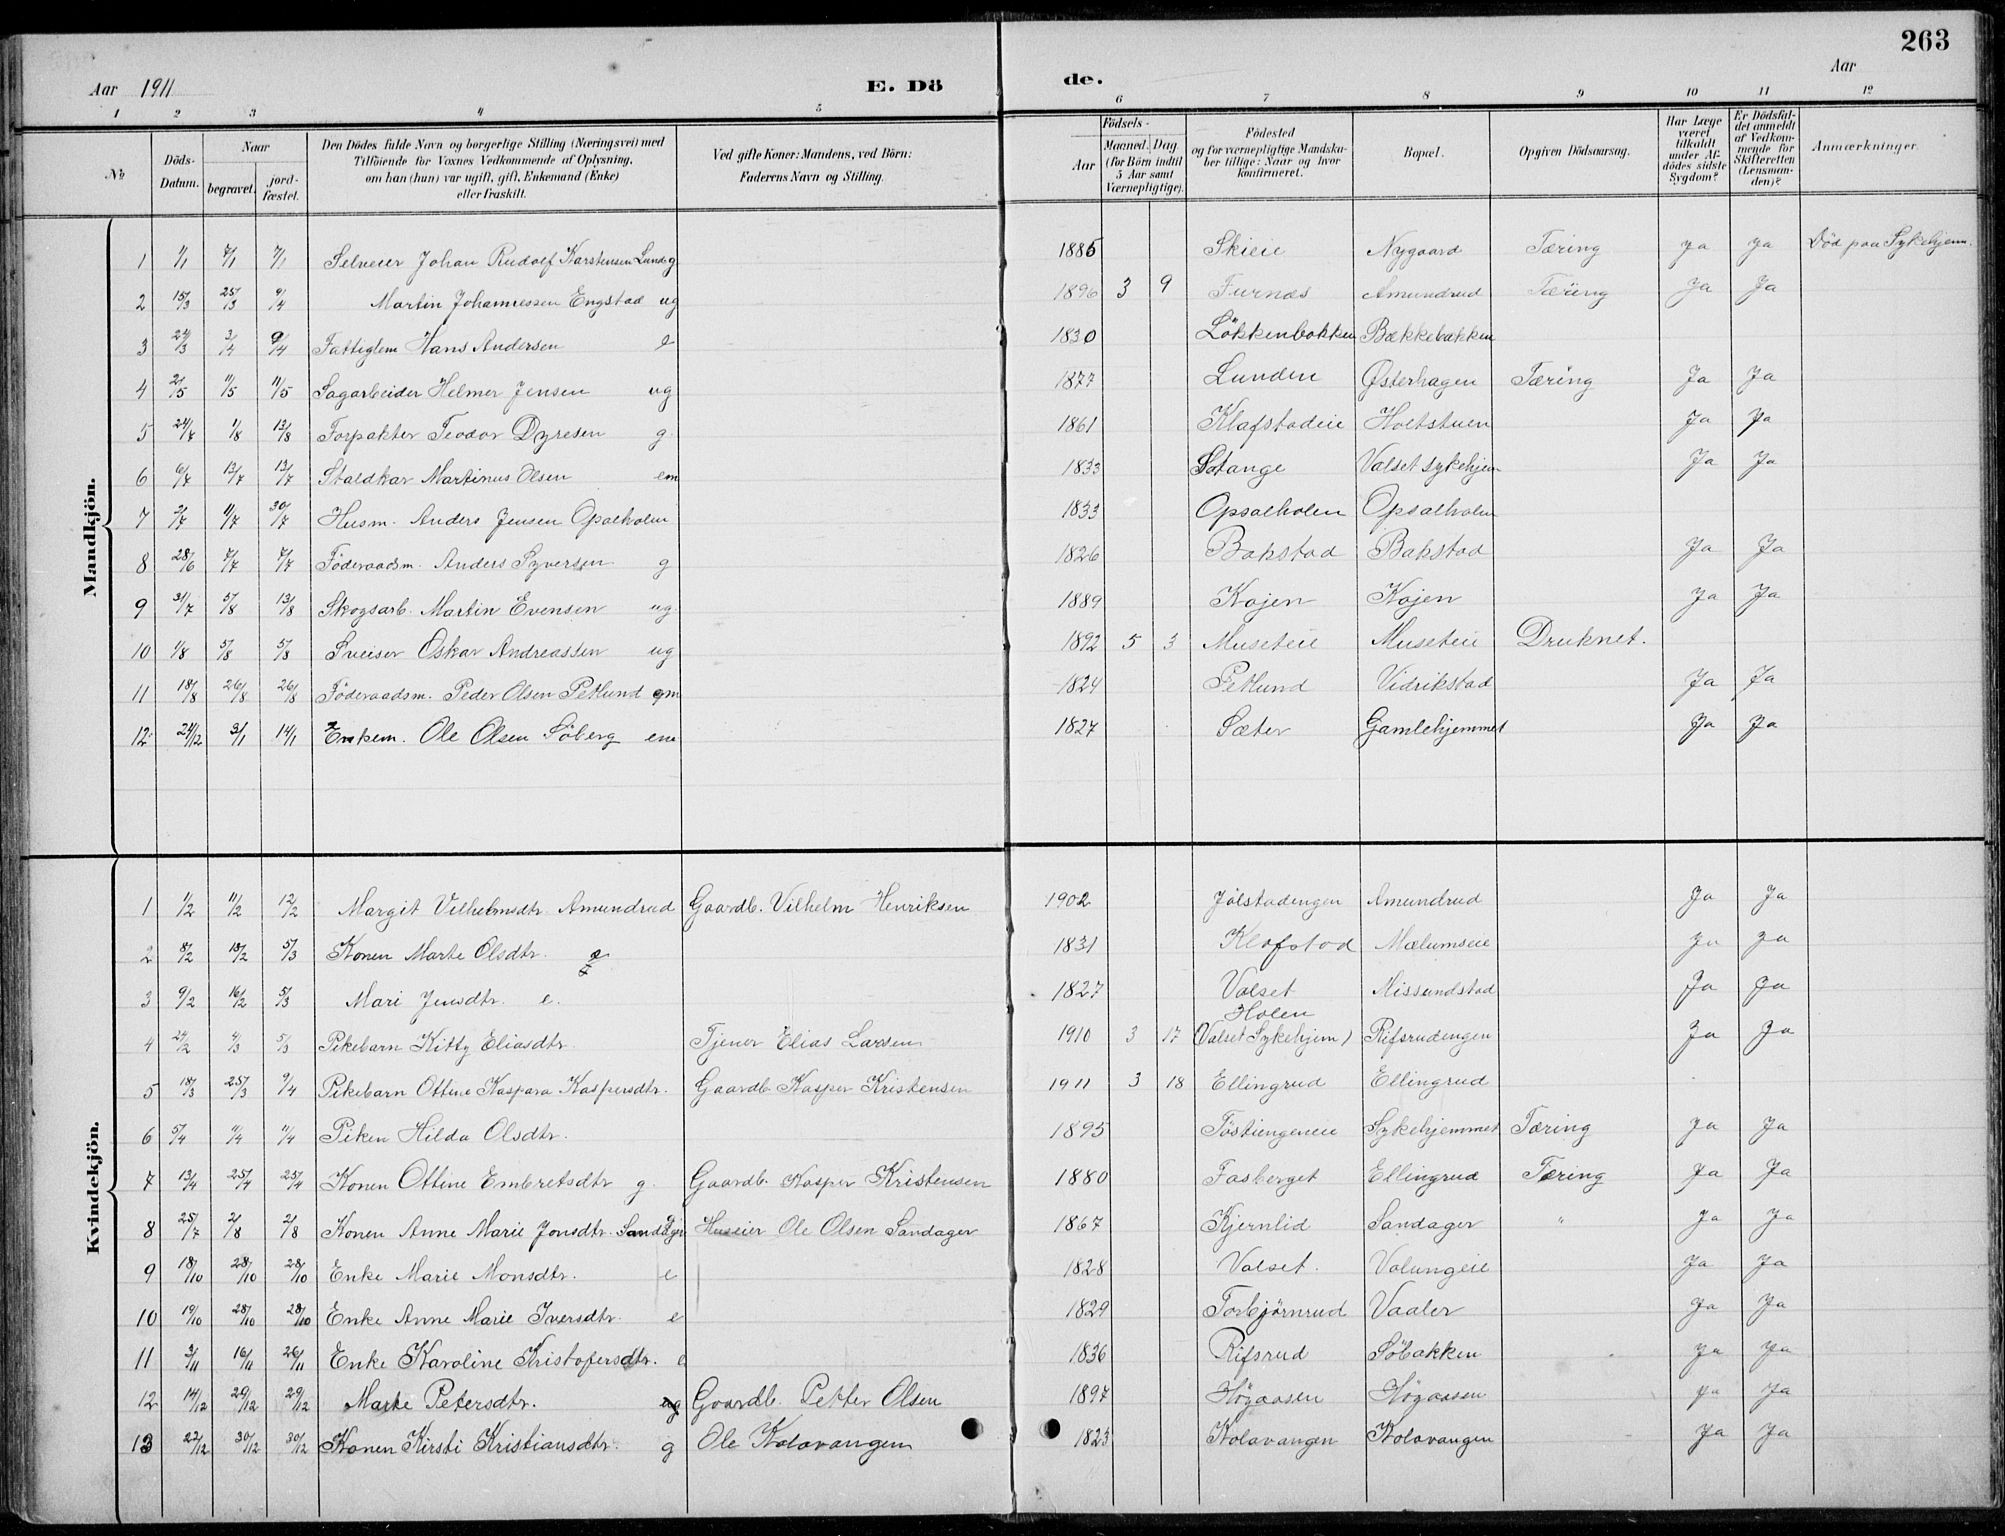 263
Aar 1911 E. Dö de. Aar
1 2 3 4 5 6 7 8 9 10 11 12
No
Döds-Datum.
Naar
begravet.
jord-fæstet.
Den Dödes fulde Navn og borgerlige Stilling (Næringsvei) med
Tilföiende for Voxnes Vedkommende af Oplysning,
om han (hun) var ugift, gift, Enkemand (Enke)
eller fraskilt.
Ved gifte Koner: Mandens, ved Börn:
Faderens Navn og Stilling.
Födsels-
Aar
Maaned. Dag
(for Börn indtil
5 Aar samt
Værnepligtige).
Födested
og for værnepligtige Mandska-
ber tillige: Naar og hvor
konfirmeret.
Bopæl.
Opgiven Dödsaarsag.
Har Læge
været
tilkaldt
under Af-
dödes sidste
Sygdom?
Er Dödsfal-
det anmeldt
af Vedkom-
mende for
Skifteretten
(Lensman-
den)?
Anmærkninger.
Mandkjön.
1 1/1 7/1 7/1 Selveier Johan Rudolf Karstensen Lund g 1885 Skieie Nygaard Tæring Ja Ja Död paa Sykehjem.
2 15/3 25/3 9/4 Martin Johannessen Engstad ug 1896 3 9 Furnæs Amundrud Tæring Ja Ja
3 24/3 3/4 9/4 Fattiglem Hans Andersen e 1830 Lökkenbakken Bækkebakken
4 2/5 11/5 11/5 Sagarbeider Helmer Jensen ug 1877 Lunden Østerhagen Tæring Ja Ja
5 24/7 1/8 13/8 Forpakter Teodor Dyresen g 1861 Klafstadeie Holtstuen Ja Ja
6 6/7 13/7 13/7 Staldkar Martinus Olsen em 1833 Stange Valset sykehjem Ja Ja
7 2/7 11/7 30/7 Husm. Anders Jensen Opsalholen 1833 Opsalholen Opsalholen
8 28/6 7/7 7/7 Föderaadsm. Anders Syversen g 1826 Bakstad Bakstad Ja Ja
9 31/7 5/8 13/8 Skogsarb. Martin Evensen ug 1889 Kojen Kojen Ja Ja
10 1/8 5/8 5/8 Sveiser Oskar Andreassen ug 1892 5 3 Museteie Museteie Druknet.
11 18/8 26/8 26/8 Föderaadsm. Peder Olsen Petlund em 1824 Petlund Vidrikstad Ja Ja
12 24/12 3/1 14/1 Enkem. Ole Olsen Söberg em 1827 Sæter Gamlehjemmet Ja Ja
Kvindekjön.
1 1/2 11/2 12/2 Margit Vilhelmsdtr. Amundrud Gaardb. Vilhelm Henriksen 1902 Jölstadengen Amundrud Ja Ja
2 8/2 13/2 5/3 Konen Marte Olsdtr. e 1831 Klafstad Mælumseie Ja Ja
3 9/2 16/2 5/3 Mari Jensdtr. e. 1827 Valset Nissundstad Ja Ja
Holen
4 24/2 4/3 5/3 Pikebarn Kitty Eliasdtr. Tjener Elias Larsen 1910 3 17 (Valset Sykehjem) Rifsrudengen Ja Ja
5 18/3 25/3 9/4 Pikebarn Ottine Kaspara Kaspersdtr. Gaardb. Kasper Kristensen 1911 3 18 Ellingrud Ellingrud
6 5/4 11/4 11/4 Piken Hilda Olsdtr. 1895 Töstiengeneie Sykehjemmet Tæring Ja Ja
7 13/4 25/4 25/4 Konen Ottine Embretsdtr g. Gaardb. Kasper Kristensen 1880 Fasberget Ellingrud Tæring Ja Ja
8 25/7 2/8 2/8 Konen Anne Marie Jonsdtr. Sandager Huseier Ole Olsen Sandager 1867 Kjernlid Sandager " Ja Ja
9 18/10 28/10 28/10 Enke Marie Monsdtr. e 1828 Valset. Valungeie Ja Ja
10 19/10 28/10 28/10 Enke Anne Marie Iversdtr. e 1829 Torbjørnrud Vaaler Ja Ja
11 3/11 16/11 26/11 Enke Karoline Kristofersdtr. e 1836 Rifsrud Söbakken Ja Ja
12 14/12 29/12 29/12 Marte Petersdtr. ug Gaardb. Petter Olsen 1897 Högaasen Högaasen Ja Ja
13 22/12 30/12 30/12 Konen Kirsti Kristiansdtr. g Ole Kolavangen 1823 Kolavangen Kolavangen Ja Ja